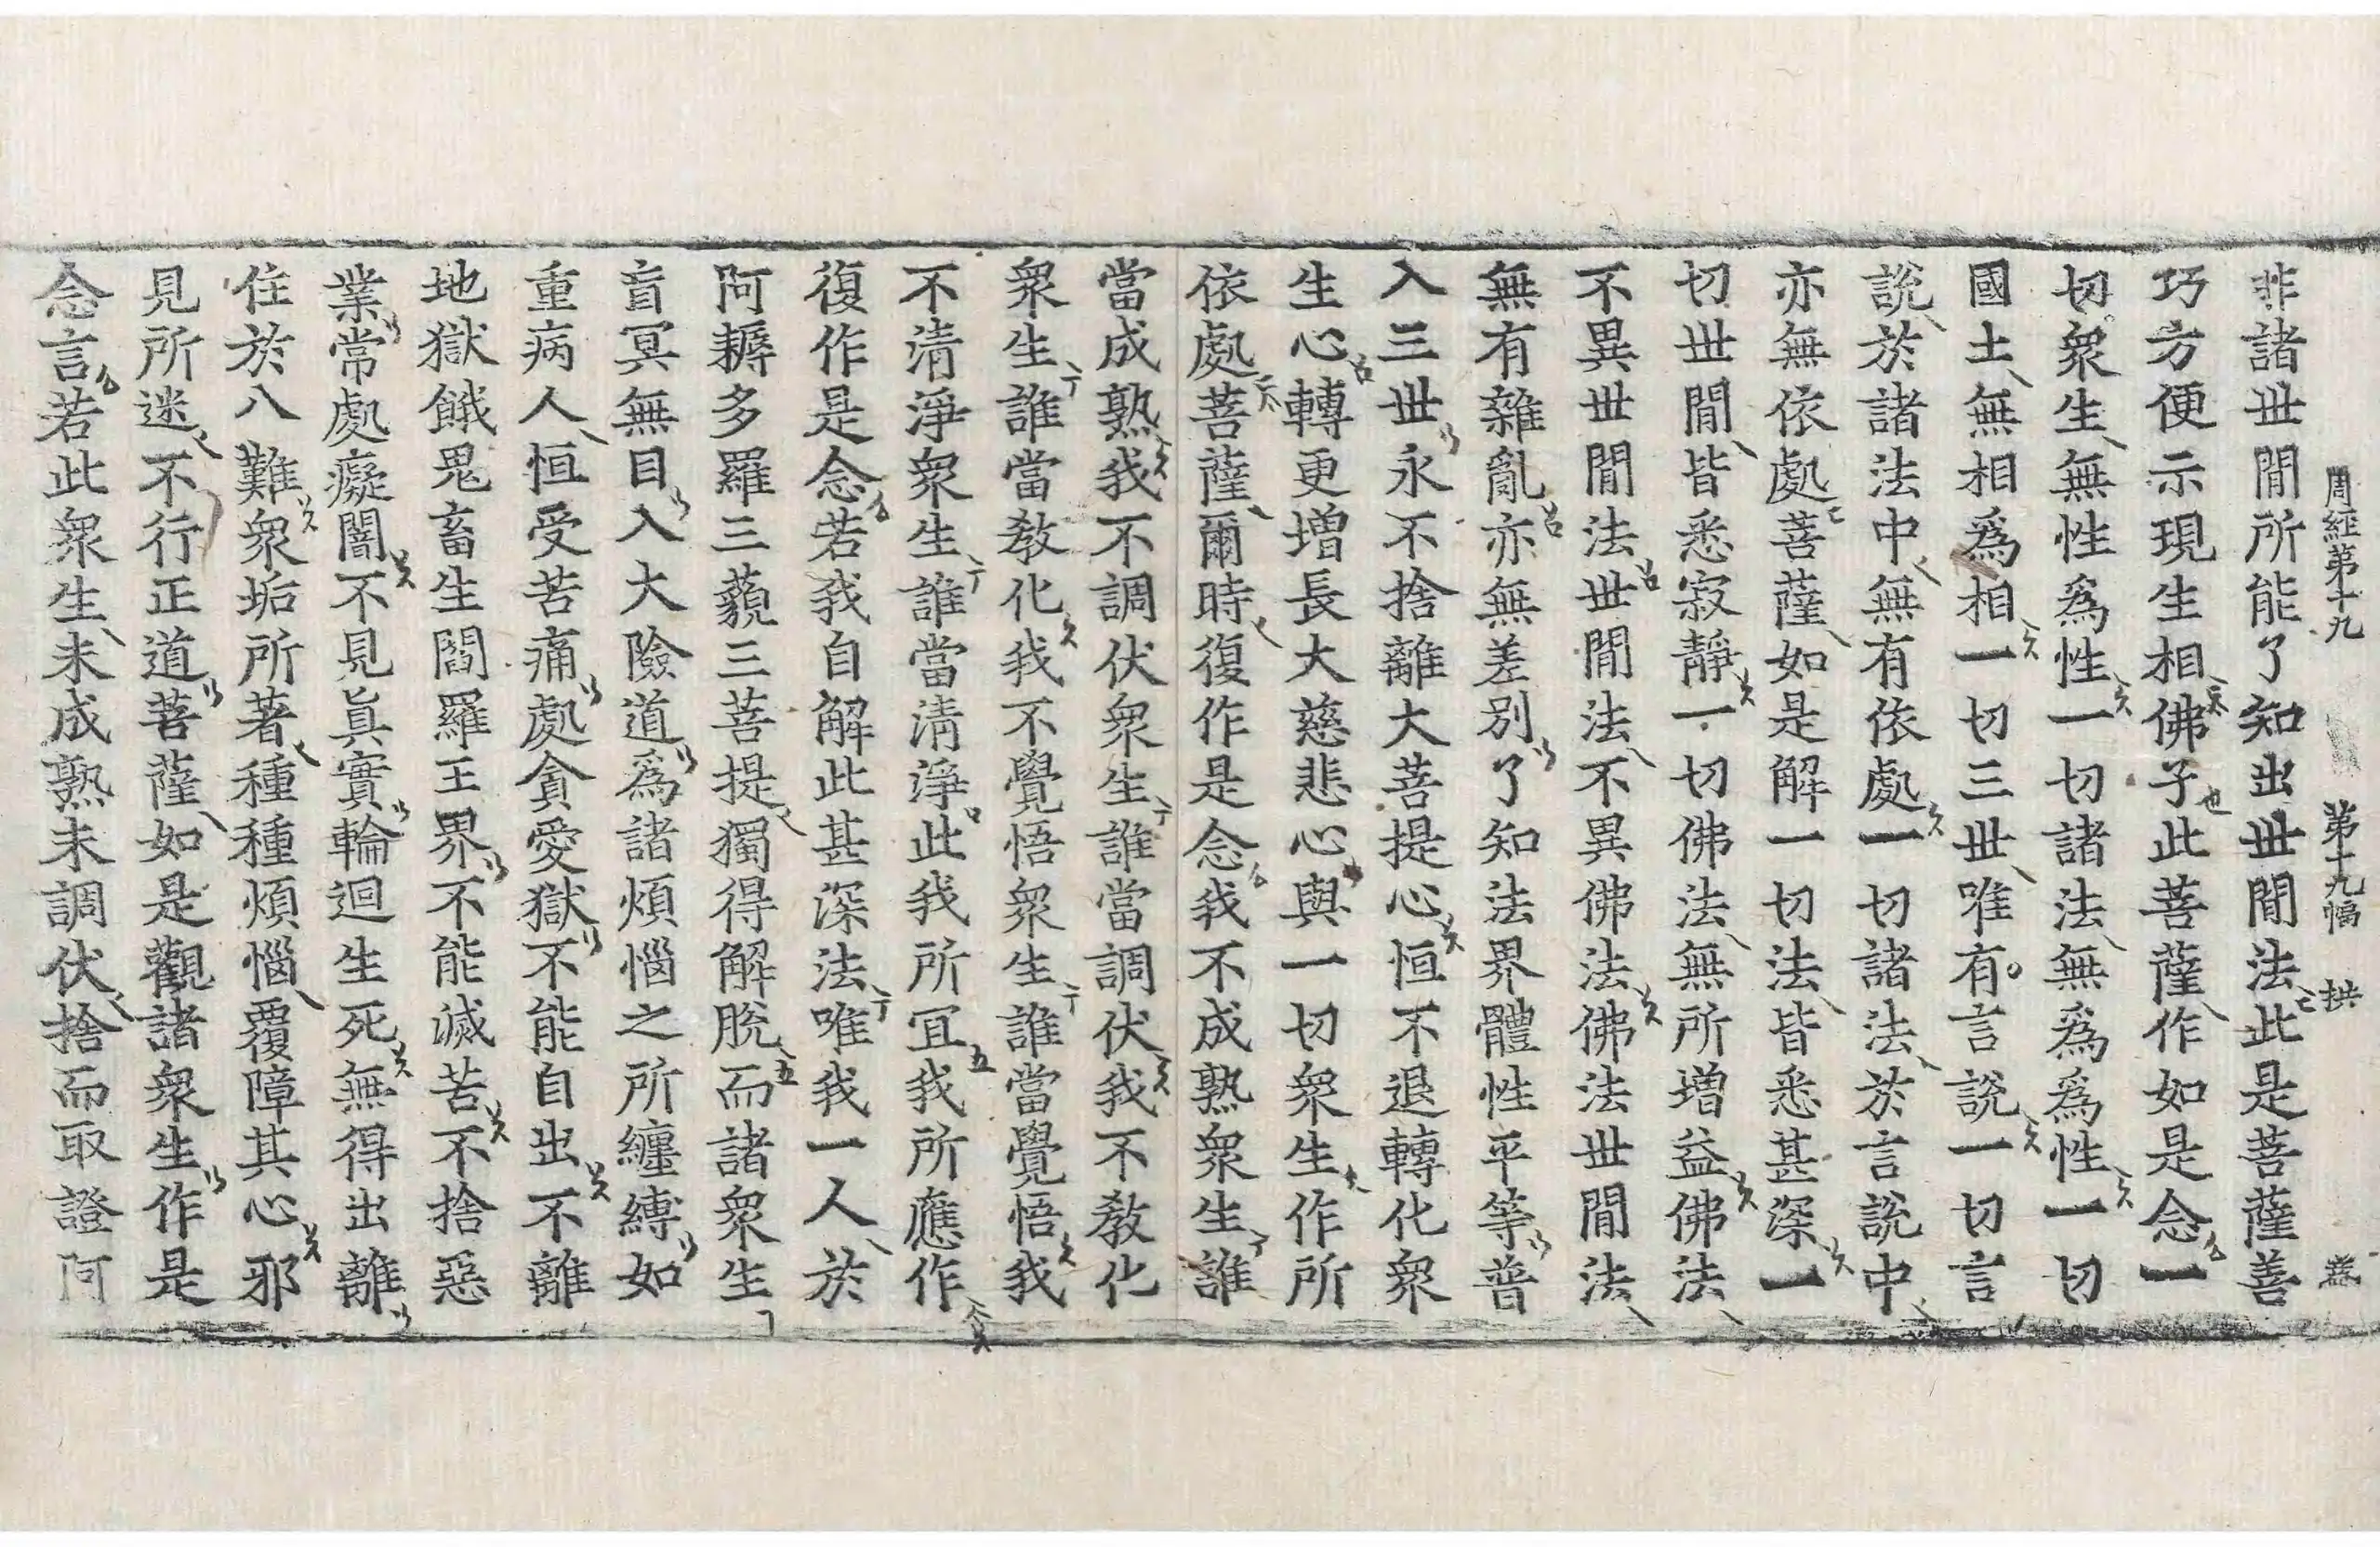 周經第十九 第十九幅 拱
非諸世閒所能了知出世閒法此是菩薩善
巧方便示現生相佛子此菩薩作如是念一
切衆生無性爲性一切諸法無爲爲性一切
國土無相爲相一切三世唯有言說一切言
說於諸法中無有依處一切諸法於言說中
亦無依處菩薩如是解一切法皆悉甚深一
切世閒皆悉寂靜一切佛法無所增益佛法
不異世閒法世閒法不異佛法佛法世閒法
無有雜亂亦無差別了知法界體性平等普
入三世永不捨離大菩提心恒不退轉化衆
生心轉更增長大慈悲心與一切衆生作所
依處菩薩爾時復作是念我不成熟衆生誰
當成熟我不調伏衆生誰當調伏我不敎化
衆生誰當敎化我不覺悟衆生誰當覺悟我
不清淨衆生誰當清淨此我所冝我所應作
復作是念若我自解此甚深法唯我一人於
阿耨多羅三藐三菩提獨得解脫而諸衆生
盲冥無目入大險道爲諸煩惱之所纏縛如
重病人恒受苦痛處貪愛獄不能自出不離
地獄餓鬼畜生閻羅王界不能滅苦不捨惡
業常處癡闇不見眞實輪迴生死無得出離
住於八難衆垢所著種種煩惱覆障其心邪
見所迷不行正道菩薩如是觀諸衆生作是
念言若此衆生未成熟未調伏捨而取證阿